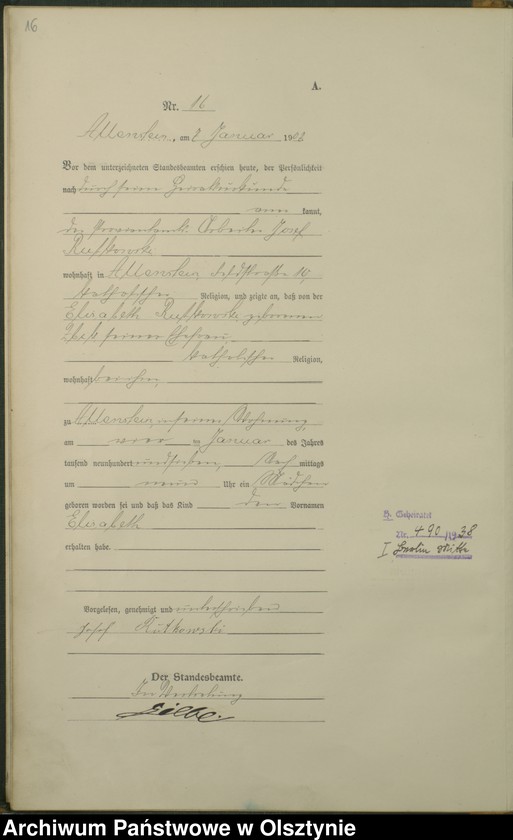 16
A.
Nr. 16
Allenstein, am 8 Januar 190
Vor dem unterzeichneten Standesbeamten erschien heute, der Persönlichkeit
nach durch seine Heiratsurkunde
kannt,
der Proviantamts Arbeiter Josef
Rutkowski
wohnhaft in Allenstein
katholischer Religion, und zeigte an, daß von der
Elisabeth Rutkowski geborenen
seiner Ehefrau
katholischer Religion,
wohnhaft bei ihm
zu Allenstein in seiner Wohnung
am Januar des Jahres
tausend neunhundert und sieben Nach mittags
um neun Uhr ein Mädchen
geboren worden sei und daß das Kind den Vornamen
Elisabeth
erhalten habe.
Vorgelesen, genehmigt und unterschrieben
Josef Rutkowski
Der Standesbeamte.
In Vertretung
Geheiratet
Nr. 490/1938
I Berlin Mitte
Archiwum Państwowe w Olsztynie